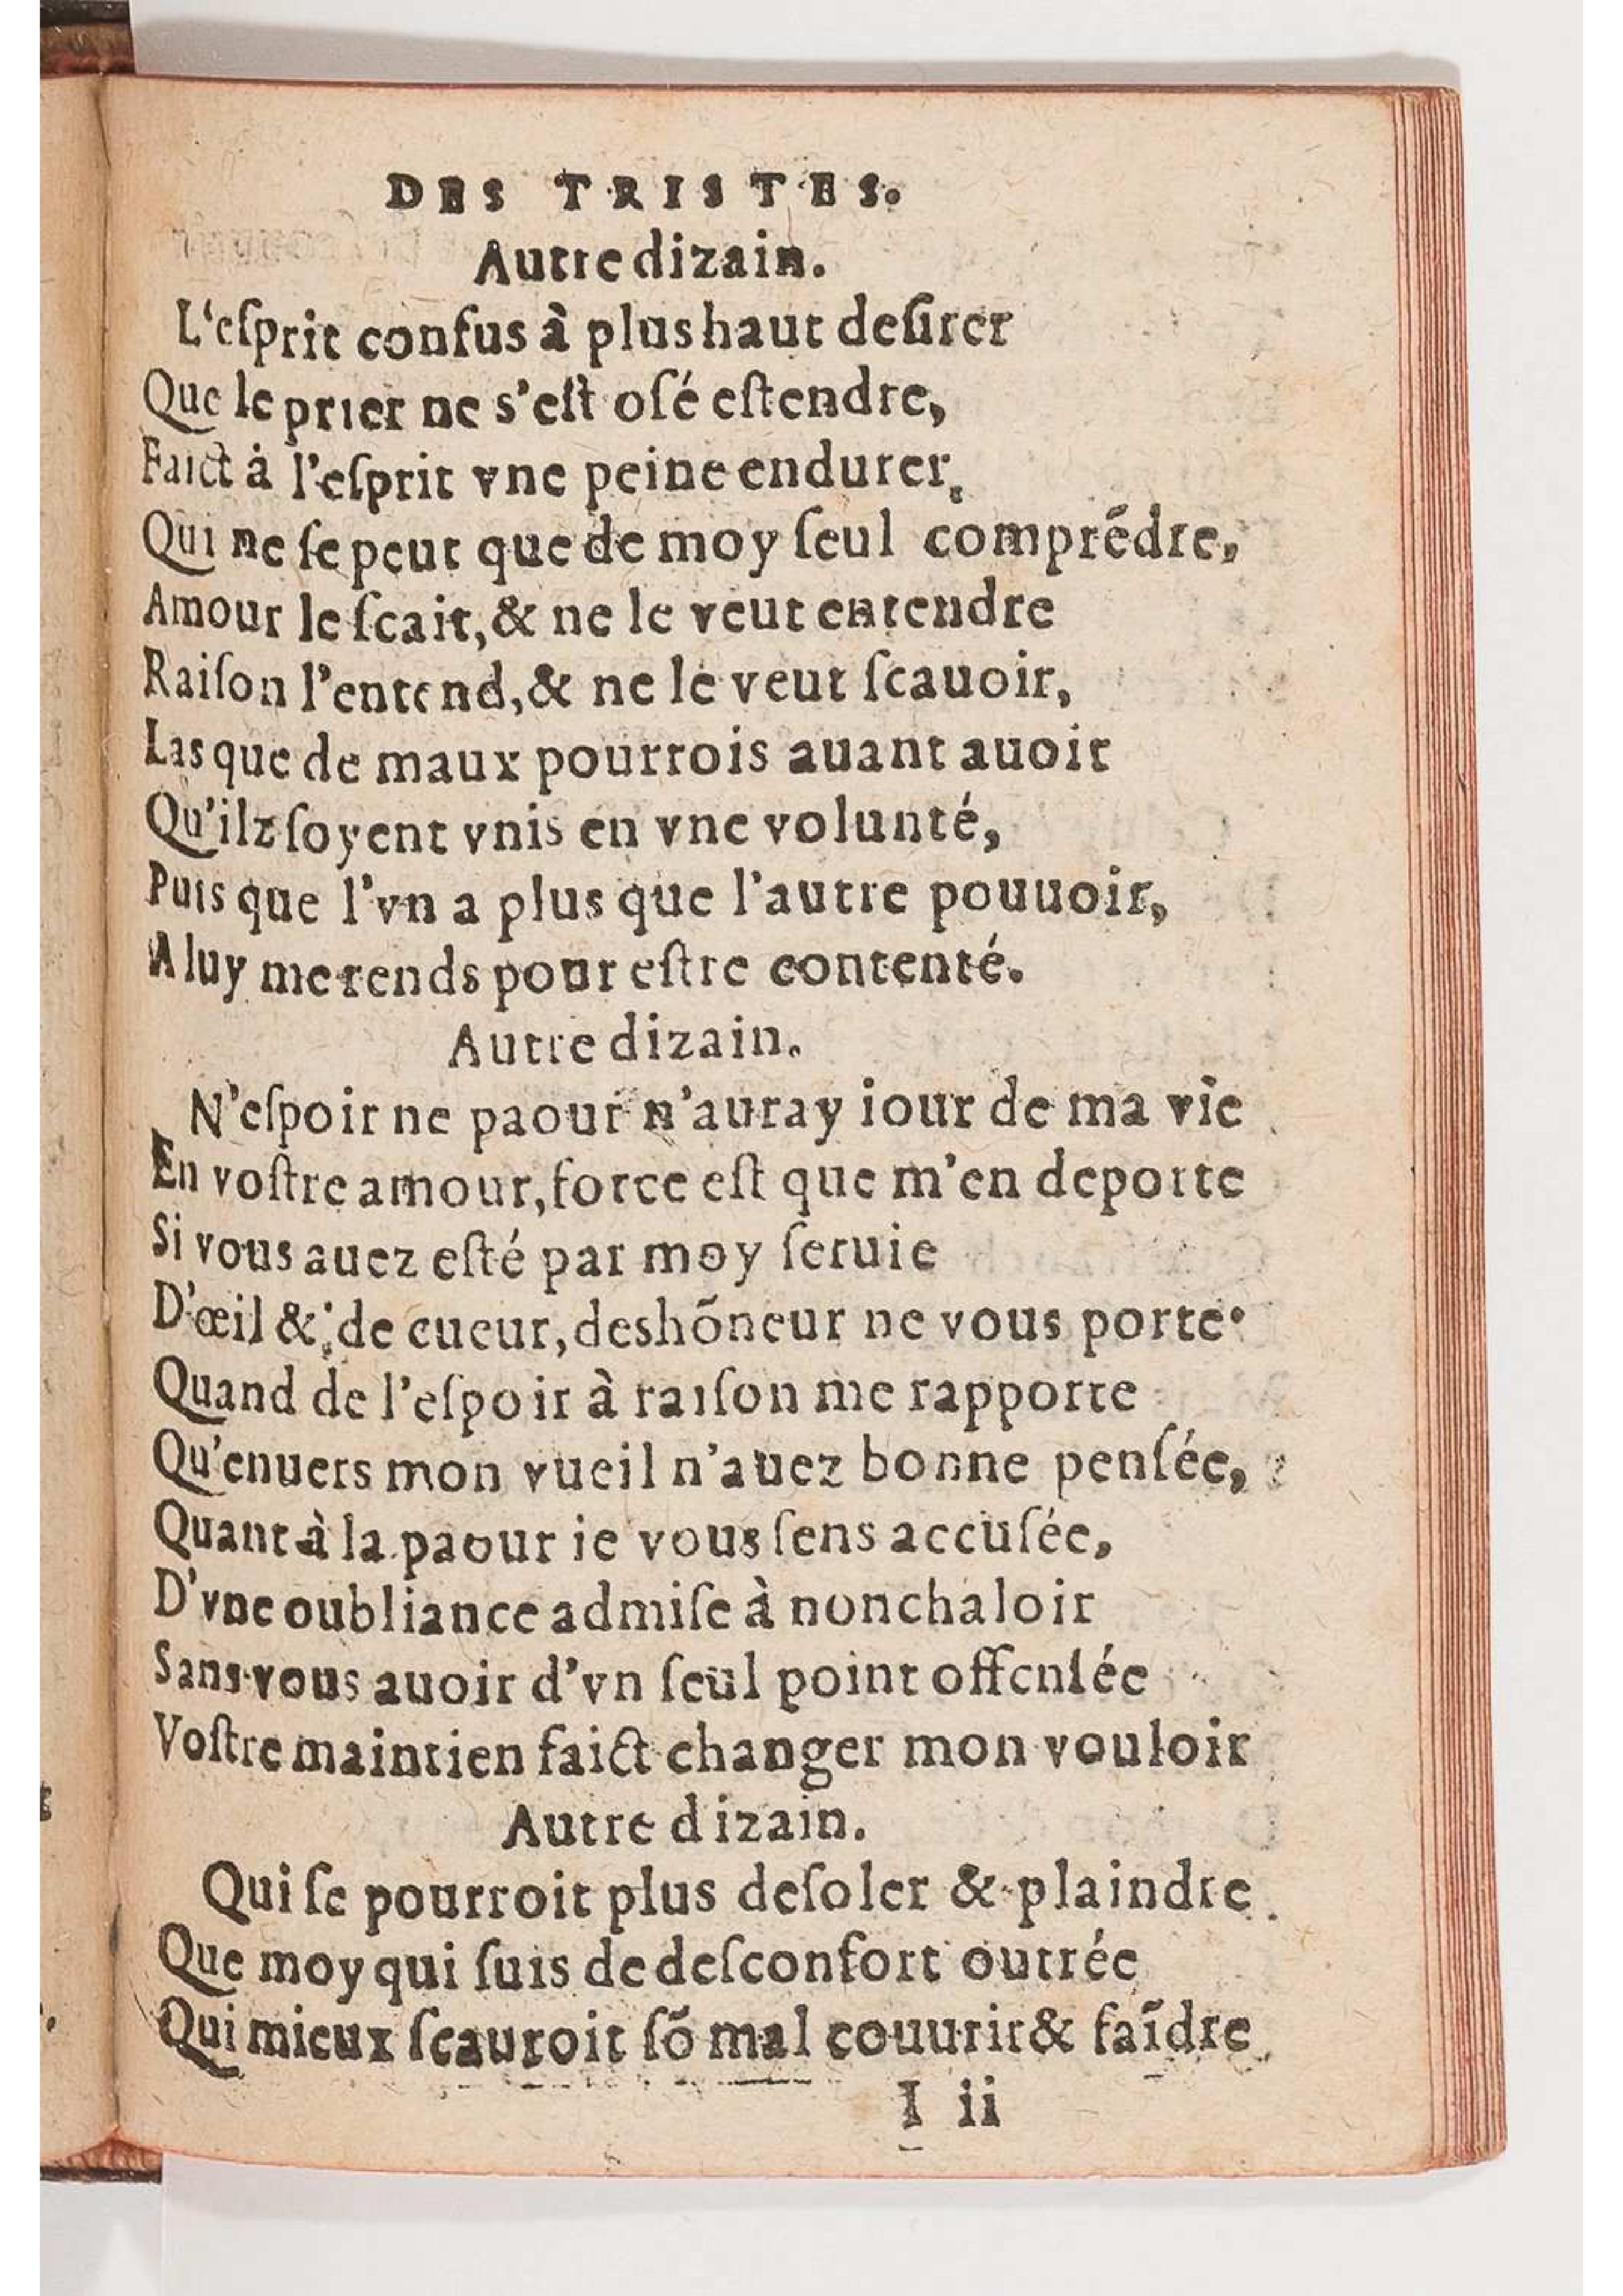 DES TRISTES.
Autre dizain.
L'eſprit confus à plus haut deſirer
Que le prier ne s'eſt oſé eſtendre,
Faict à l'eſprit vne peine endurer,
Qui ne ſe peut que de moy ſeul comprẽdre,
Amour le ſcait, & ne le veut entendre
Raiſon l'entend, & ne le veut ſcauoir,
Las que de maux pourrois auant auoir
Qu'ilz ſoyent vnis en vne volunté,
Puis que l'vn a plus que l'autre pouuoir,
A luy me rends pour eſtre contenté.
Autre dizain.
N'eſpoir ne paour n'auray iour de ma vie
En voſtre amour, force eſt que m'en deporte
Si vous auez eſté par moy ſeruie
D'œil & de cueur, deshõneur ne vous porte.
Quand de l'eſpoir à raiſon me rapporte
Qu'enuers mon vueil n'auez bonne penſée,
Quant à la paour ie vous ſens accuſée,
D'vne oubliance admiſe à nonchaloir
Sans vous auoir d'vn ſeul point offenſée
Voſtre maintien faict changer mon vouloir
Autre dizain.
Qui ſe pourroit plus deſoler & plaindre
Que moy qui ſuis de deſconfort outrée
Qui mieux ſcauroit ſõ mal couurir & faĩdre
I ii